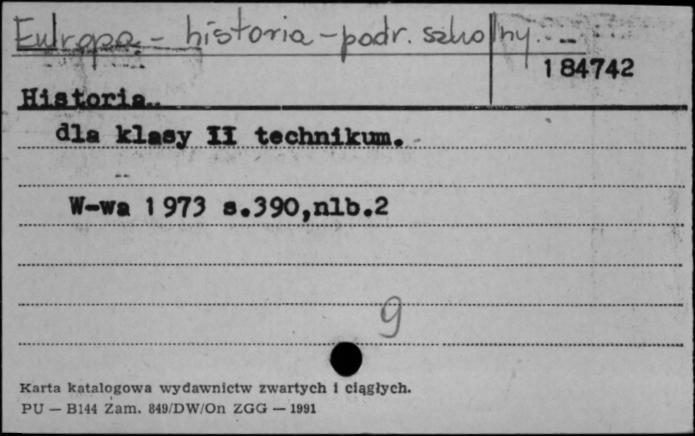 Europa - historia - podr. szkolny
184742
Historia..
dla klasy II technikum.
W-wa 1973 s.390,nlb.2
9
Karta katalogowa wydawnictw zwartych i ciągłych.
PU — B144 Zam. 849/DW/On ZGG — 1991